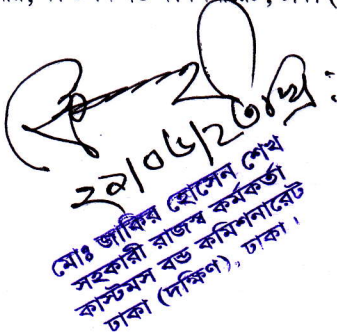 ২৯/০৬/২৩খ্রি:
মোঃ জাকির হোসেন শেখ
সহকারী রাজস্ব কর্মকর্তা
কাস্টমস বন্ড কমিশনারেট
ঢাকা (দক্ষিণ), ঢাকা।